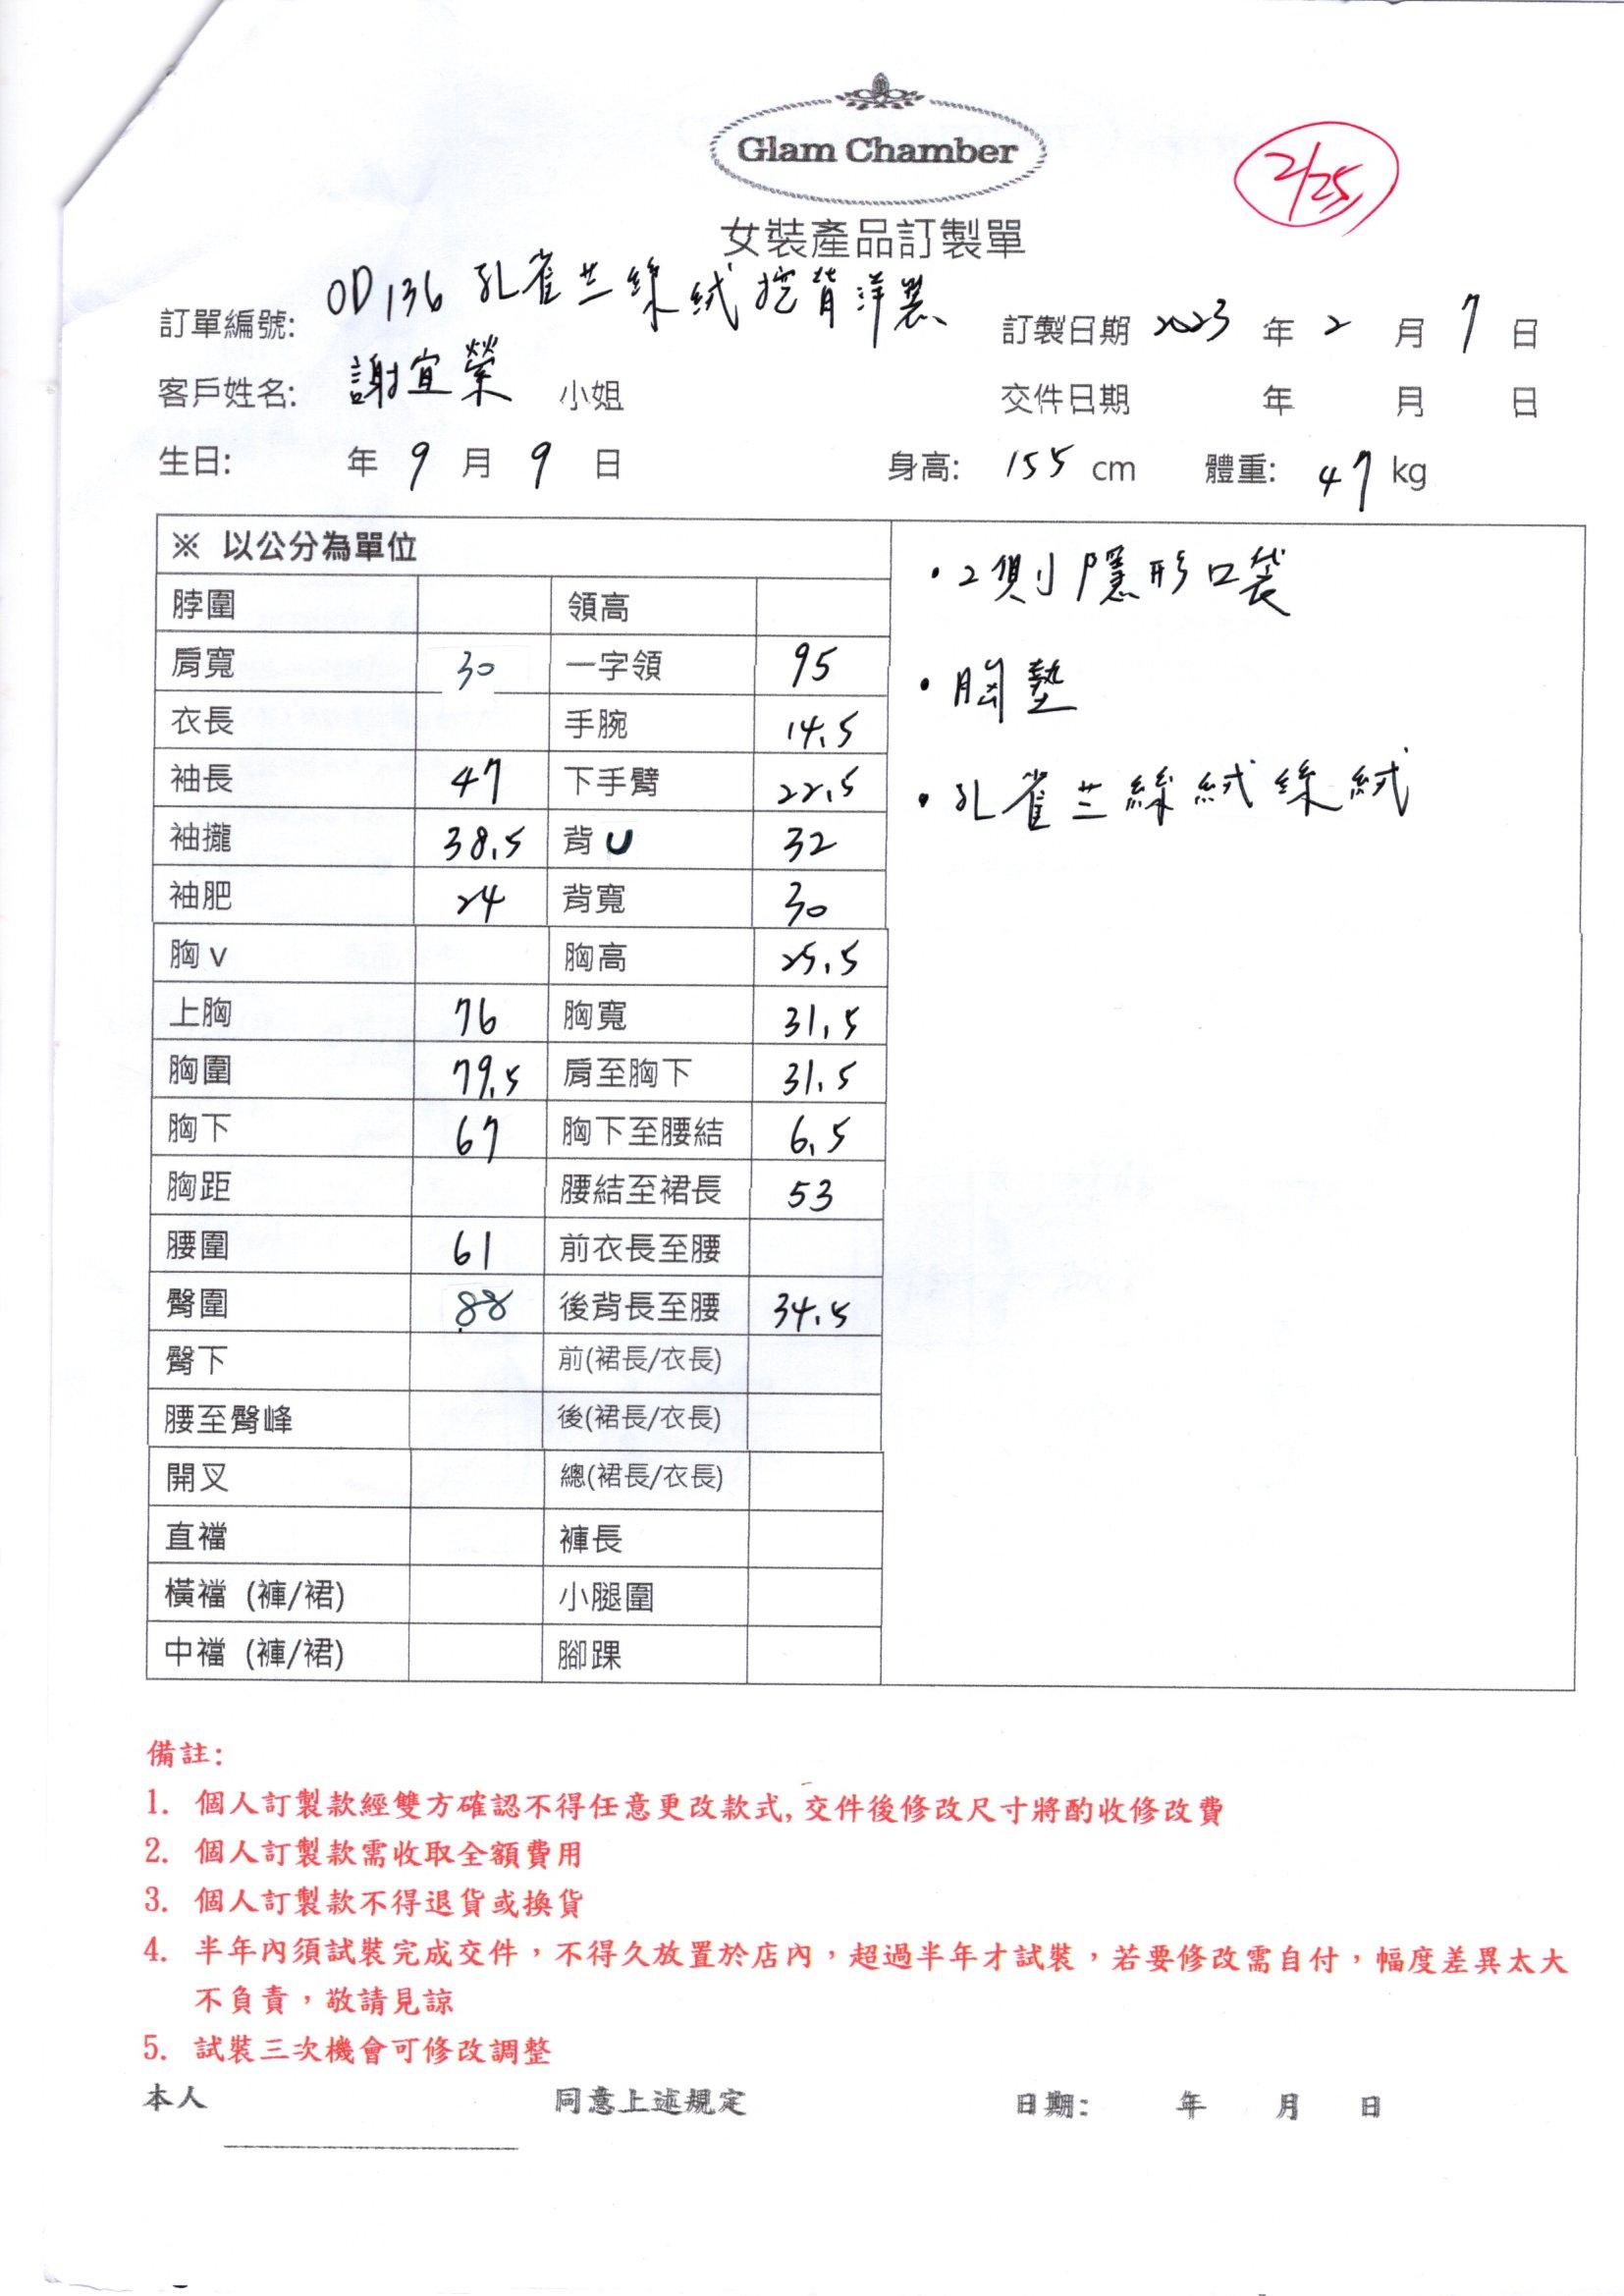 Glam Chamber
2/25
女裝產品訂製單
訂單編號: OD136 孔雀兰絲絨挖背洋裝
訂製日期 2023 年 2 月 7 日
客戶姓名: 謝宜縈 小姐
交件日期 年 月 日
生日: 年 9 月 9 日 身高: 155 cm 體重: 47 kg
※ 以公分為單位
脖圍 領高
肩寬 30 一字領 95
衣長 手腕 14.5
袖長 47 下手臂 22.5
袖攏 38.5 背U 32
袖肥 24 背寬 30
胸v 胸高 25.5
上胸 76 胸寬 31.5
胸圍 79.5 肩至胸下 31.5
胸下 67 胸下至腰結 6.5
胸距 腰結至裙長 53
腰圍 61 前衣長至腰
臀圍 88 後背長至腰 34.5
臀下 前(裙長/衣長)
腰至臀峰 後(裙長/衣長)
開叉 總(裙長/衣長)
直襠 褲長
橫襠 (褲/裙) 小腿圍
中襠 (褲/裙) 腳踝
・2側隱形口袋
・胸墊
・孔雀兰絲絨絲絨
備註:
1. 個人訂製款經雙方確認不得任意更改款式,交件後修改尺寸將酌收修改費
2. 個人訂製款需收取全額費用
3. 個人訂製款不得退貨或換貨
4. 半年內須試裝完成交件，不得久放置於店內，超過半年才試裝，若要修改需自付，幅度差異太大
不負責，敬請見諒
5. 試裝三次機會可修改調整
本人 同意上述規定 日期: 年 月 日